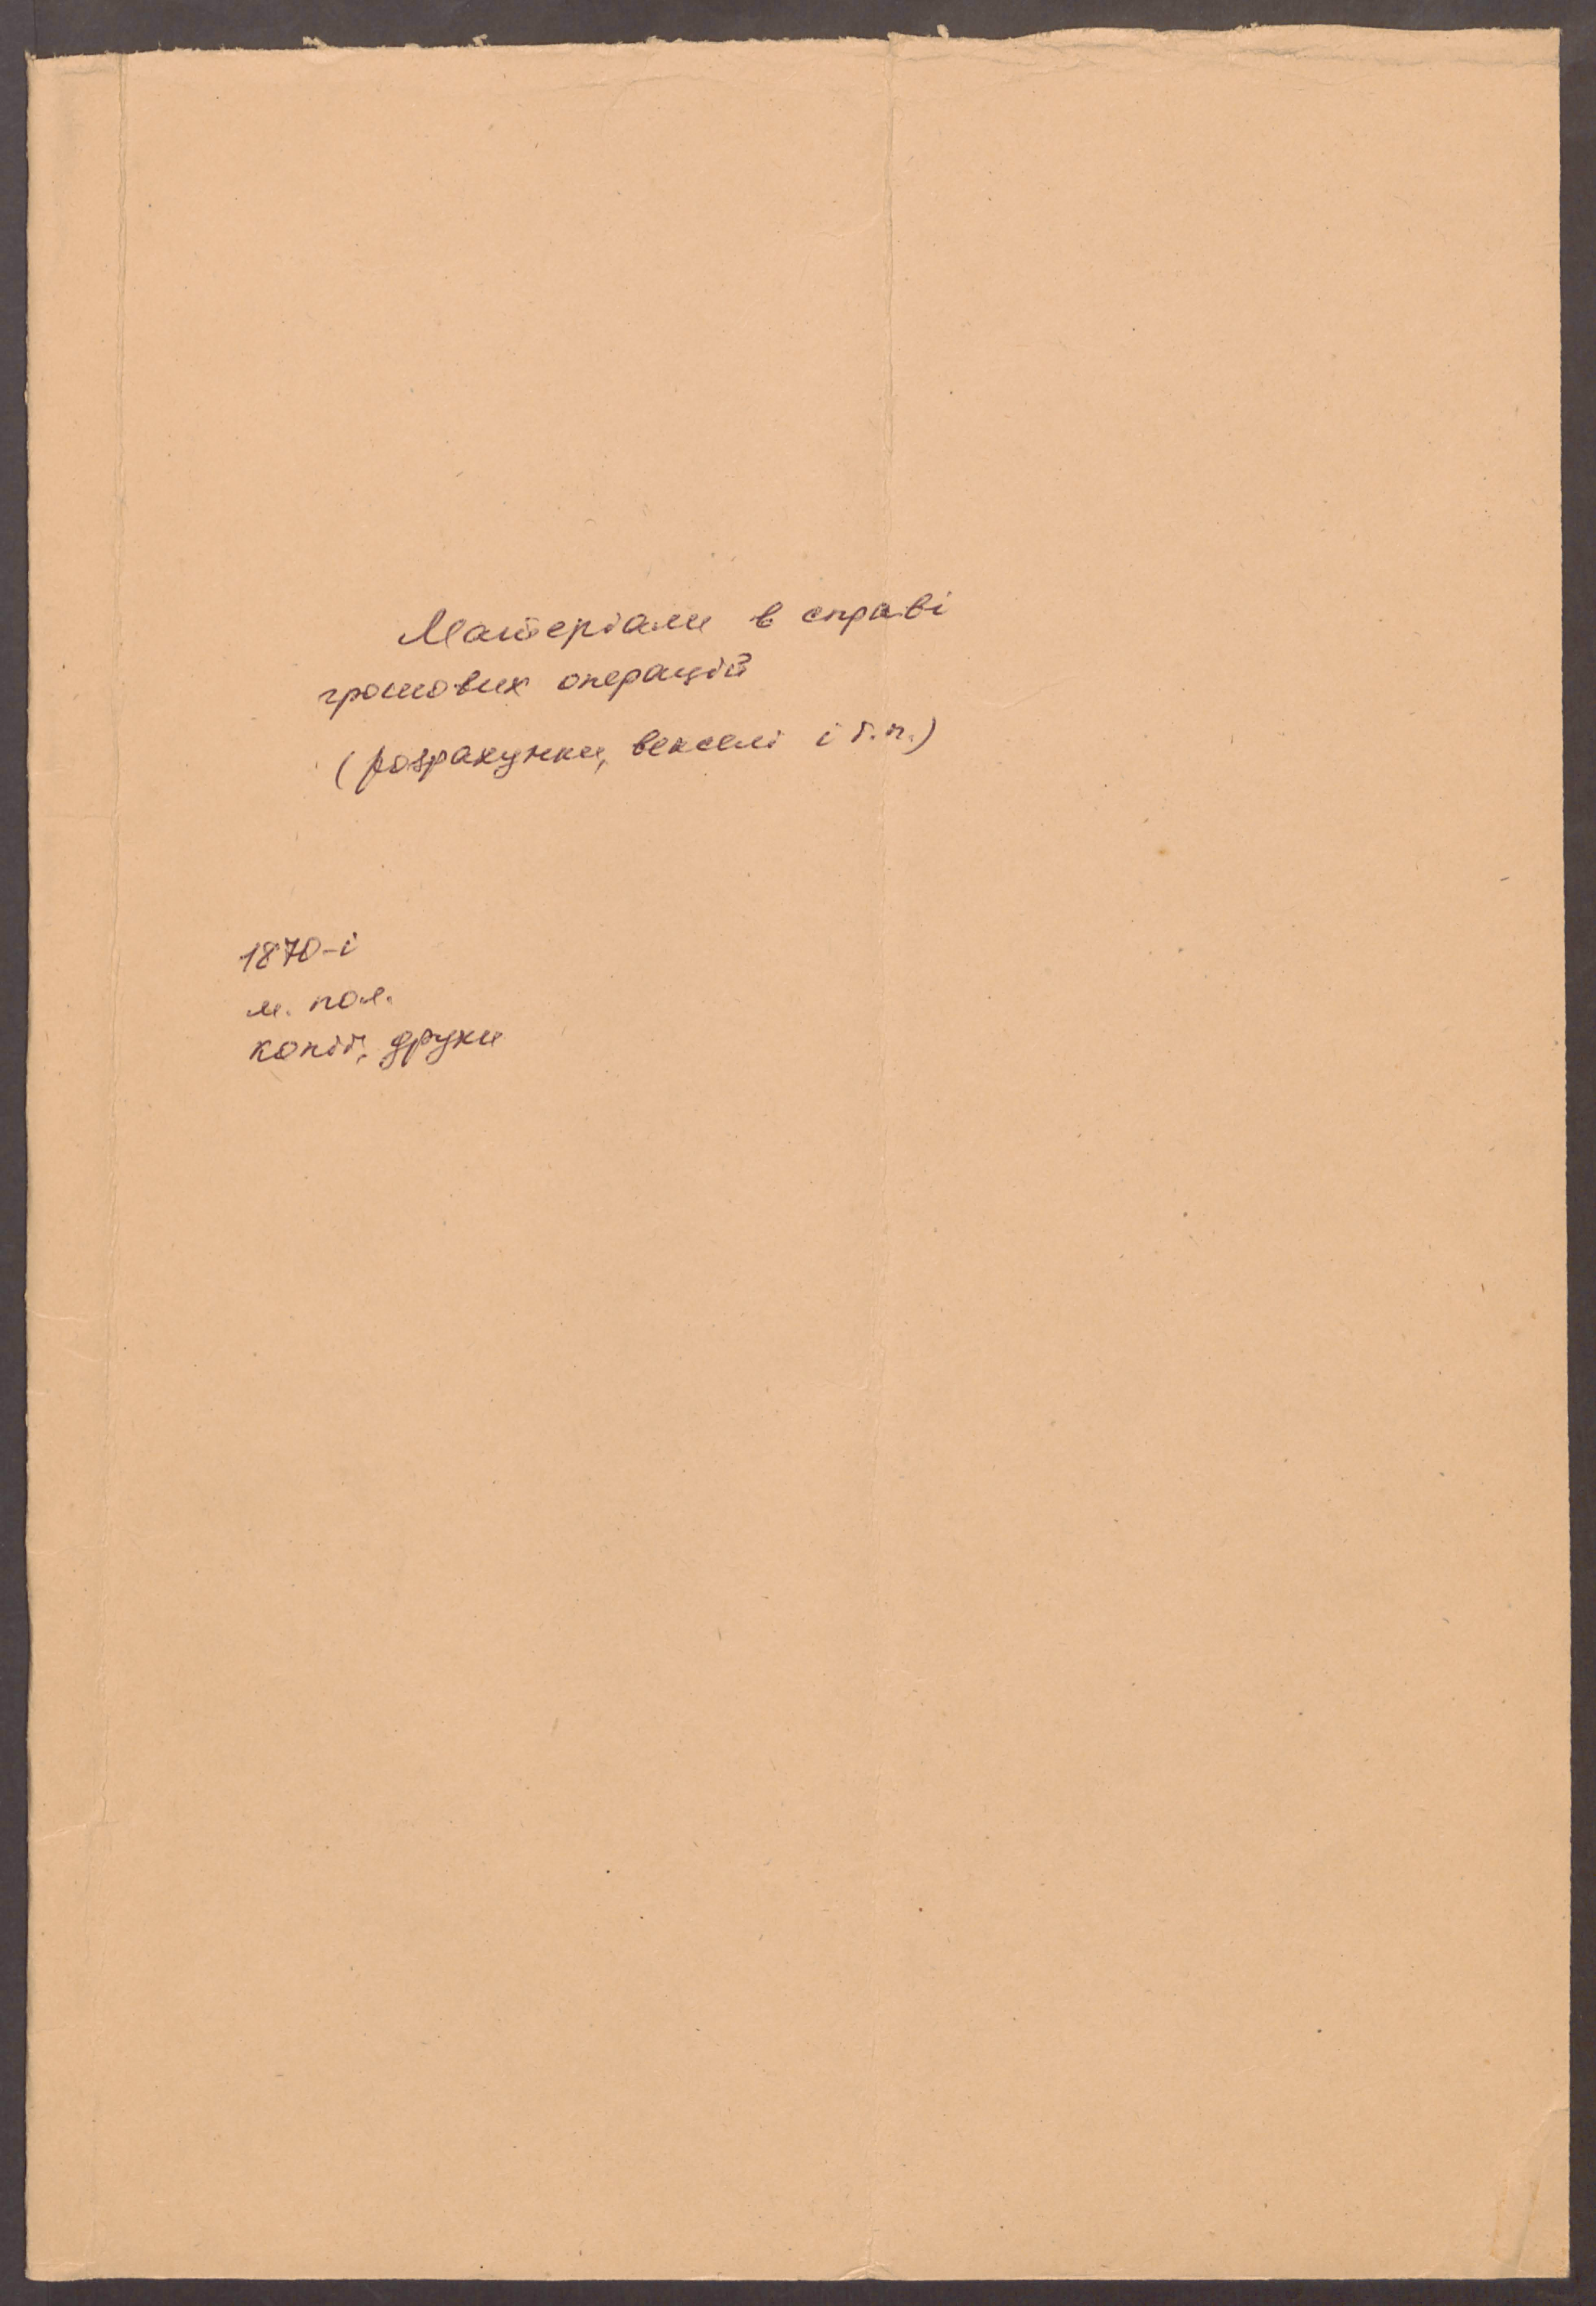 Матеріали в справі
грошових операцій
(розрахунки, векселі і т.п.)
1870-і
м. пол.
копії, друки